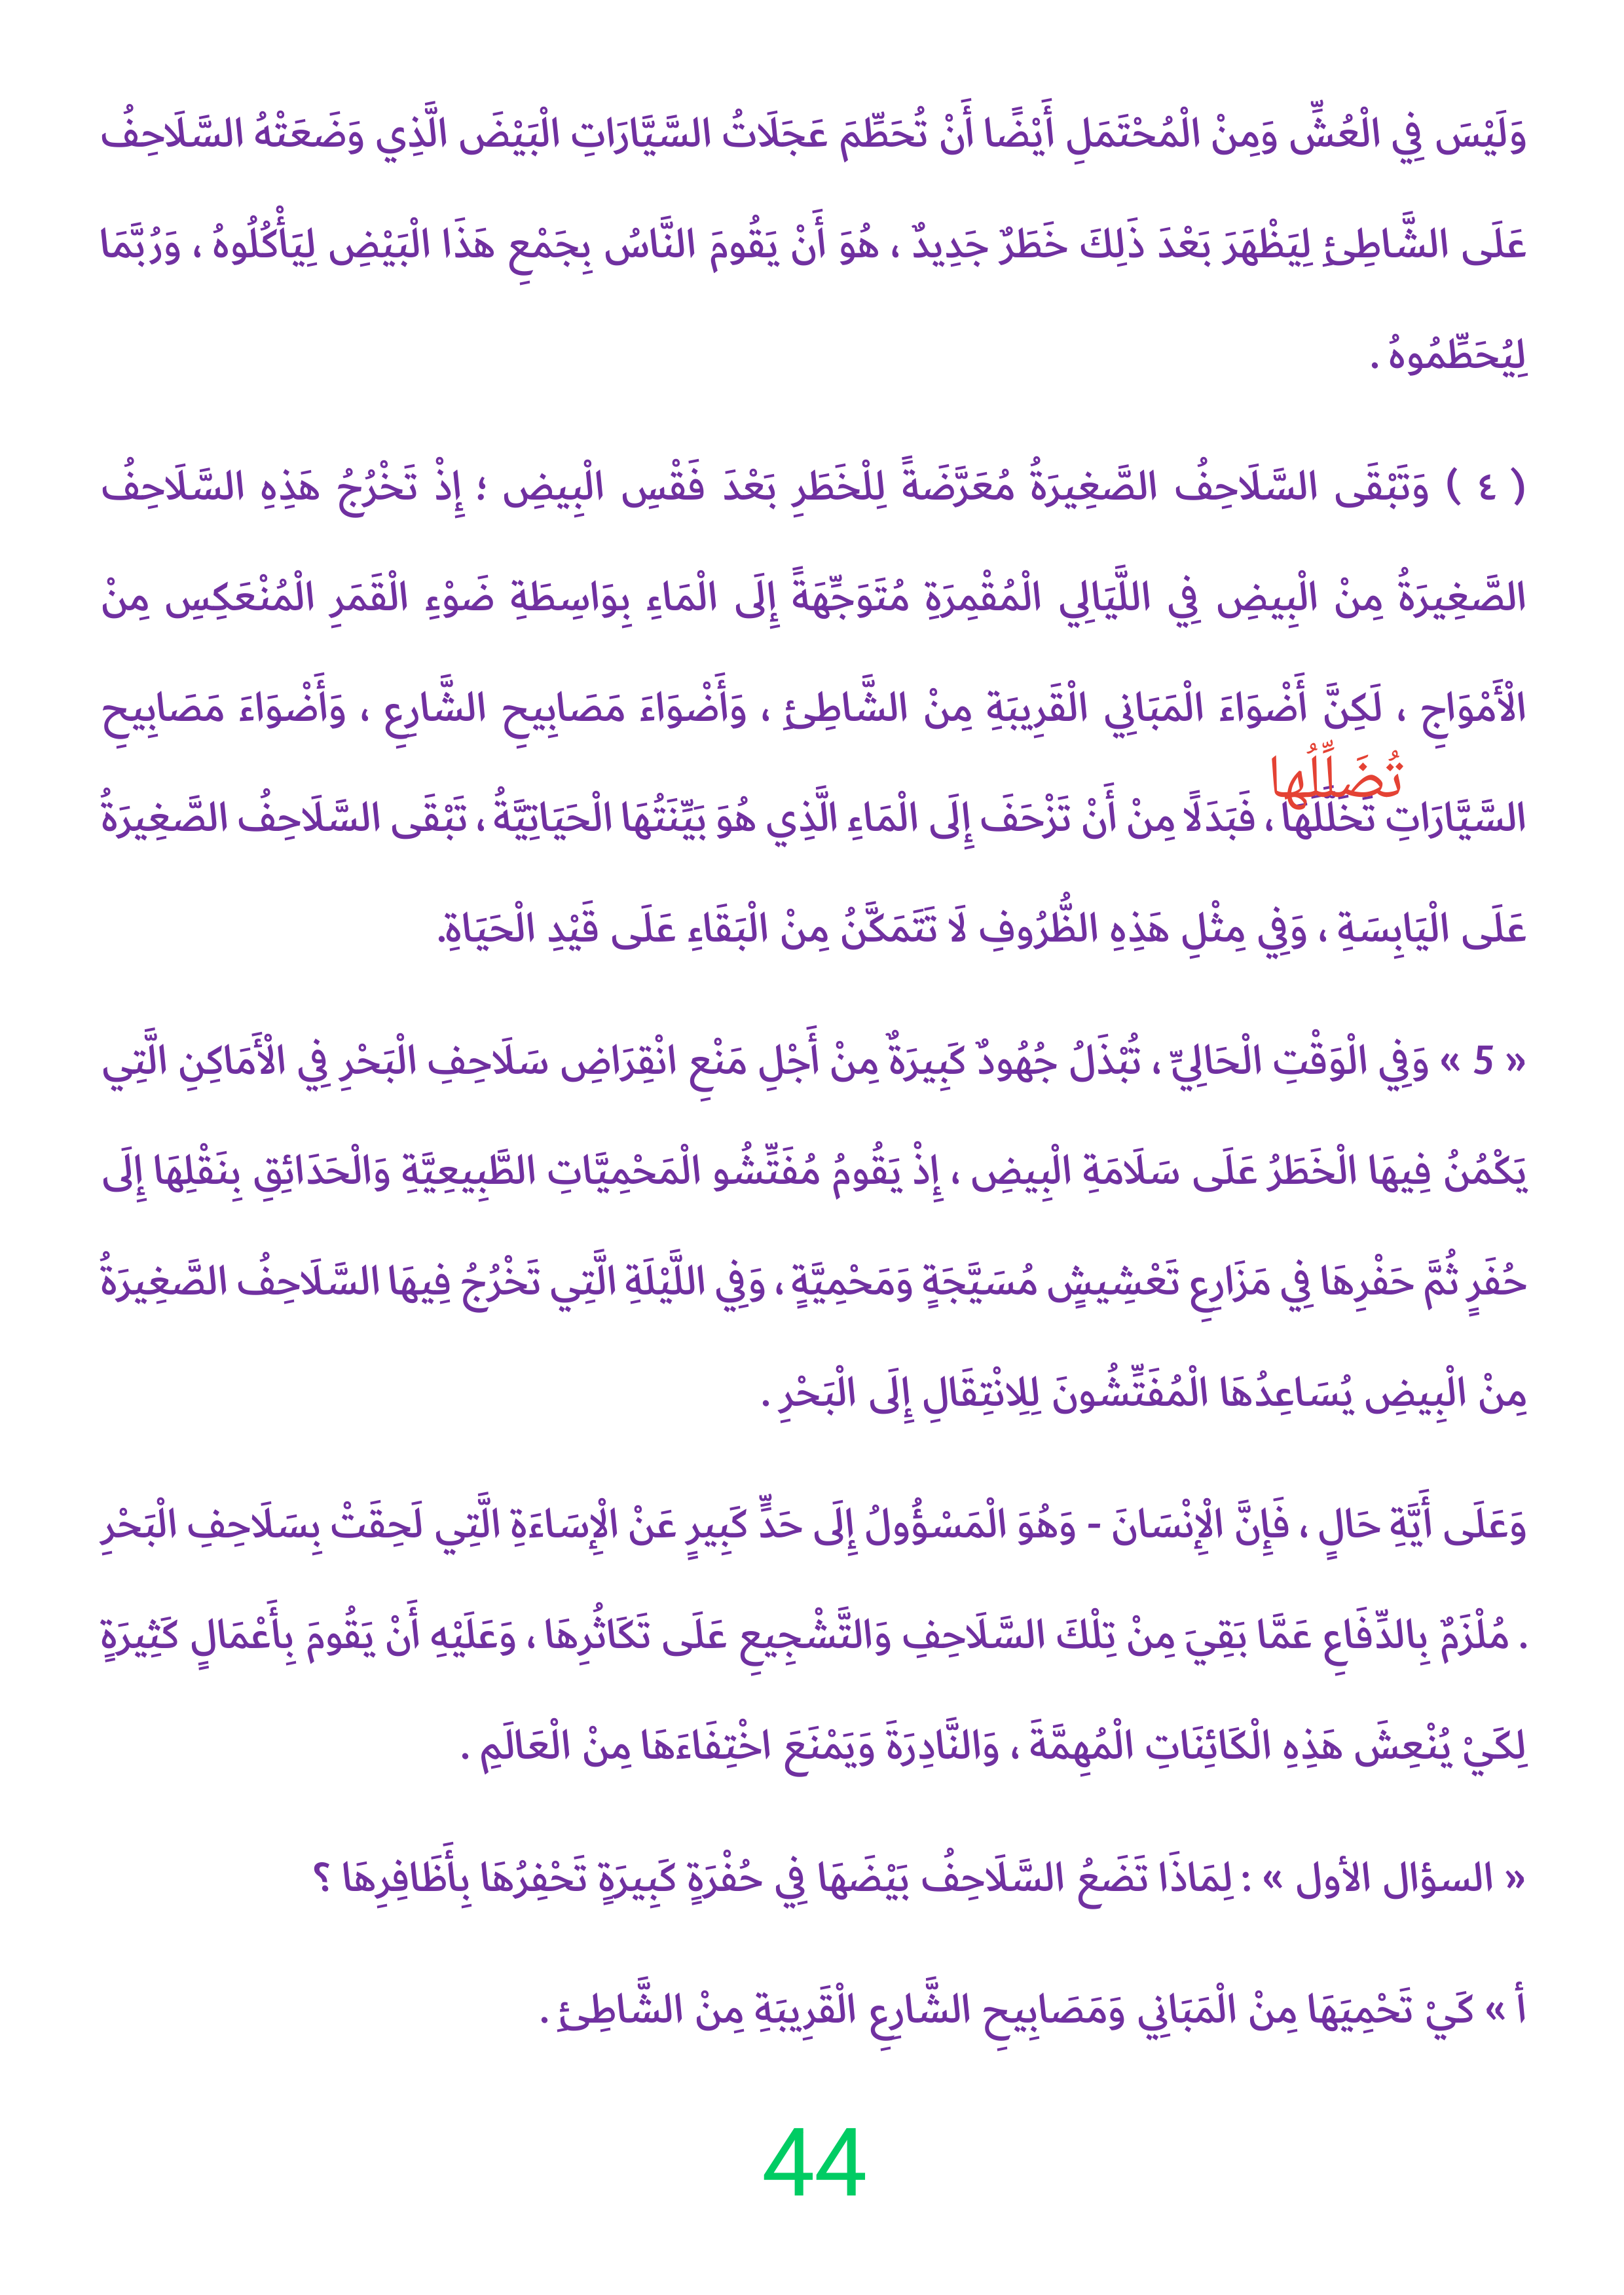 وَلَيْسَ فِي الْعُشِّ وَمِنْ الْمُحْتَمَلِ أَيْضًا أَنْ تُحَطِّمَ عَجَلَاتُ السَّيَّارَاتِ الْبَيْضَ الَّذِي وَضَعَتْهُ السَّلَاحِفُ
عَلَى الشَّاطِئِ لِيَظْهَرَ بَعْدَ ذَلِكَ خَطَرٌ جَدِيدٌ ، هُوَ أَنْ يَقُومَ النَّاسُ بِجَمْعِ هَذَا الْبَيْضِ لِيَأْكُلُوهُ ، وَرُبَّمَا
لِيُحَطِّمُوهُ .
( ٤ ) وَتَبْقَى السَّلَاحِفُ الصَّغِيرَةُ مُعَرَّضَةً لِلْخَطَرِ بَعْدَ فَقْسِ الْبِيضِ ؛ إِذْ تَخْرُجُ هَذِهِ السَّلَاحِفُ
الصَّغِيرَةُ مِنْ الْبِيضِ فِي اللَّيَالِي الْمُقْمِرَةِ مُتَوَجِّهَةً إِلَى الْمَاءِ بِوَاسِطَةِ ضَوْءِ الْقَمَرِ الْمُنْعَكِسِ مِنْ
الْأَمْوَاجِ ، لَكِنَّ أَضْوَاءَ الْمَبَانِي الْقَرِيبَةِ مِنْ الشَّاطِئِ ، وَأَضْوَاءَ مَصَابِيحِ الشَّارِعِ ، وَأَضْوَاءَ مَصَابِيحِ
تُضَلِّلُها
السَّيَّارَاتِ تَخَلَّلَهَا ، فَبَدَلًا مِنْ أَنْ تَزْحَفَ إِلَى الْمَاءِ الَّذِي هُوَ بَيِّنَتُهَا الْحَيَاتِيَّةُ ، تَبْقَى السَّلَاحِفُ الصَّغِيرَةُ
عَلَى الْيَابِسَةِ ، وَفِي مِثْلِ هَذِهِ الظُّرُوفِ لَا تَتَمَكَّنُ مِنْ الْبَقَاءِ عَلَى قَيْدِ الْحَيَاةِ.
« 5 » وَفِي الْوَقْتِ الْحَالِيِّ ، تُبْذَلُ جُهُودٌ كَبِيرَةٌ مِنْ أَجْلِ مَنْعِ انْقِرَاضِ سَلَاحِفِ الْبَحْرِ فِي الْأَمَاكِنِ الَّتِي
يَكْمُنُ فِيهَا الْخَطَرُ عَلَى سَلَامَةِ الْبِيضِ ، إِذْ يَقُومُ مُفَتِّشُو الْمَحْمِيَّاتِ الطَّبِيعِيَّةِ وَالْحَدَائِقِ بِنَقْلِهَا إِلَى
حُفَرٍ ثُمَّ حَفْرِهَا فِي مَزَارِعِ تَعْشِيشٍ مُسَيَّجَةٍ وَمَحْمِيَّةٍ ، وَفِي اللَّيْلَةِ الَّتِي تَخْرُجُ فِيهَا السَّلَاحِفُ الصَّغِيرَةُ
مِنْ الْبِيضِ يُسَاعِدُهَا الْمُفَتِّشُونَ لِلِانْتِقَالِ إِلَى الْبَحْرِ .
وَعَلَى أَيَّةِ حَالٍ ، فَإِنَّ الْإِنْسَانَ - وَهُوَ الْمَسْؤُولُ إِلَى حَدٍّ كَبِيرٍ عَنْ الْإِسَاءَةِ الَّتِي لَحِقَتْ بِسَلَاحِفِ الْبَحْرِ
. مُلْزَمٌ بِالدِّفَاعِ عَمَّا بَقِيَ مِنْ تِلْكَ السَّلَاحِفِ وَالتَّشْجِيعِ عَلَى تَكَاثُرِهَا ، وَعَلَيْهِ أَنْ يَقُومَ بِأَعْمَالٍ كَثِيرَةٍ
لِكَيْ يُنْعِشَ هَذِهِ الْكَائِنَاتِ الْمُهِمَّةَ ، وَالنَّادِرَةَ وَيَمْنَعَ اخْتِفَاءَهَا مِنْ الْعَالَمِ .
« السؤال الأول » : لِمَاذَا تَضَعُ السَّلَاحِفُ بَيْضَهَا فِي حُفْرَةٍ كَبِيرَةٍ تَحْفِرُهَا بِأَظَافِرِهَا ؟
أ » كَيْ تَحْمِيَهَا مِنْ الْمَبَانِي وَمَصَابِيحِ الشَّارِعِ الْقَرِيبَةِ مِنْ الشَّاطِئِ .
44